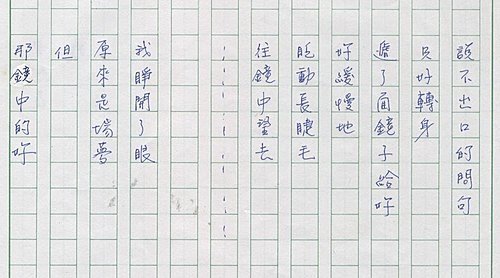 說不出口的問句
只好轉身
遞了面鏡子給妳
妳緩慢地
眨動長睫毛
往鏡中望去
……
我睜開了眼
原來是場夢
但
那鏡中的妳